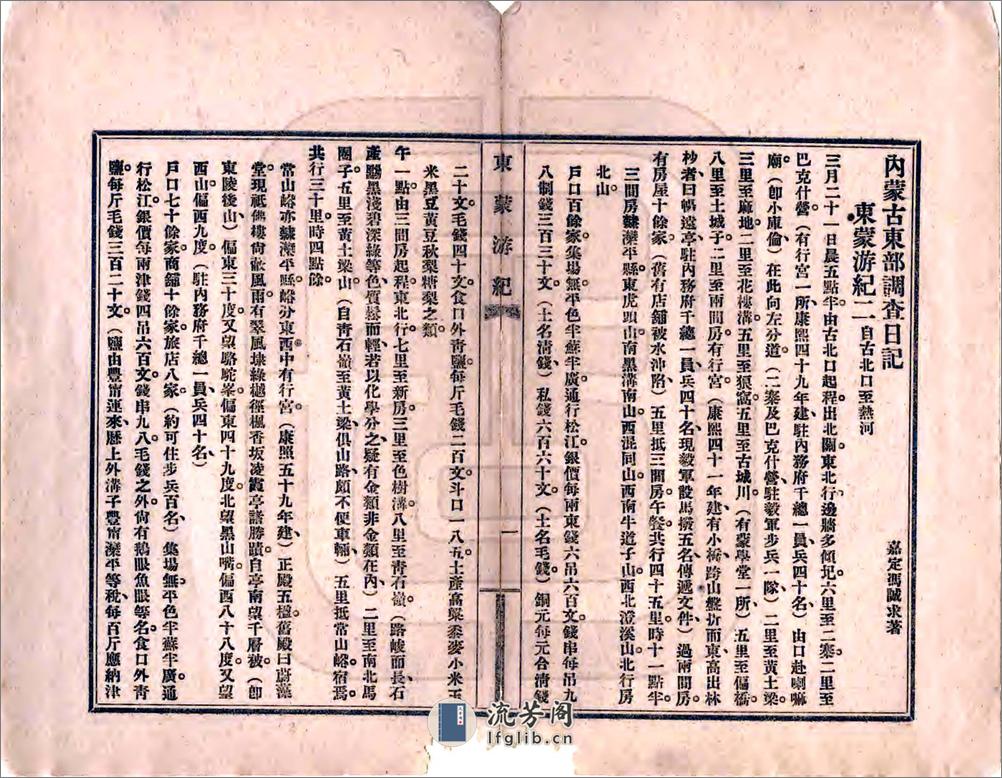 內蒙古東部調查日記
東蒙游紀二 自古北口至熱河
嘉定馮誠求著
三月二十一日晨五點半由古北口起程出北關東北行邊牆多傾圯六里至二寨二里至
巴克什營(有行宮一所康熙四十九年建駐內務府千總一員兵四十名)由口赴喇嘛
廟(卽小庫倫)在此向左分道(二寨及巴克什營駐毅軍步兵一隊)二里至黃土梁
三里至麻地二里至花樓溝五里至狼窩五里至古城川(有蒙學堂一所)五里至偏橋
八里至土城子二里至兩間房有行宮(康熙四十一年建有小橋跨山盤折而東高出林
杪者曰暢遠亭駐內務府千總一員兵四十名現毅軍設馬撥五名傳遞文件)過兩間房
有房屋十餘家(舊有店舖被水沖路)五里抵三間房午餐共行四十五里時十一點半
三間房隸灤平縣東虎頭山南黑溝南山西混同山西南牛道子山西北澄溪山北行房
北山
戶口百餘家集場無平色半蘇半廣通行松江銀價每兩東錢六吊六百文錢串每吊九
八制錢三百三十文(土名淸錢)私錢六百六十文(土名毛錢)銅元每元合淸錢
東蒙游紀
一
二十文毛錢四十文食口外靑鹽每斤毛錢二百文斗口一八五土產高粱黍麥小米玉
米黑豆黃豆秋梨糖梨之類
午一點由三間房起程東北行七里至新房三里至色樹溝八里至靑石嶺(路峻而長石
產黯黑淺碧深綠等色質鬆而輕若以化學分之疑有金類非金類在內)二里至南北馬
圈子五里至黃土梁山(自靑石嶺至黃土梁俱山路頗不便車輛)五里抵常山峪宿焉
共行三十里時四點餘
常山峪亦隸灤平縣峪分東西中有行宮(康熙五十九年建)正殿五楹舊殿曰蔚藻
堂現祇佛樓尙敝風雨有翠風埭綠樾徑楓香坂淩霞亭諸勝蹟自亭南望千層被(卽
東陵後山)偏東三十度又望駱駝峯偏東四十九度北望黑山嘴偏西八十八度又望
西山偏西九度(駐內務府千總一員兵四十名)
戶口七十餘家商舖十餘家旅店八家(約可住步兵百名)集場無平色半蘇半廣通
行松江銀價每兩津錢四吊六百文錢串九八毛錢之外尙有鵝眼魚眼等名食口外靑
鹽每斤毛錢三百二十文(鹽由豐甯運來歷上外溝子豐甯灤平等稅每百斤應納津
流芳阁
lfglib.cn